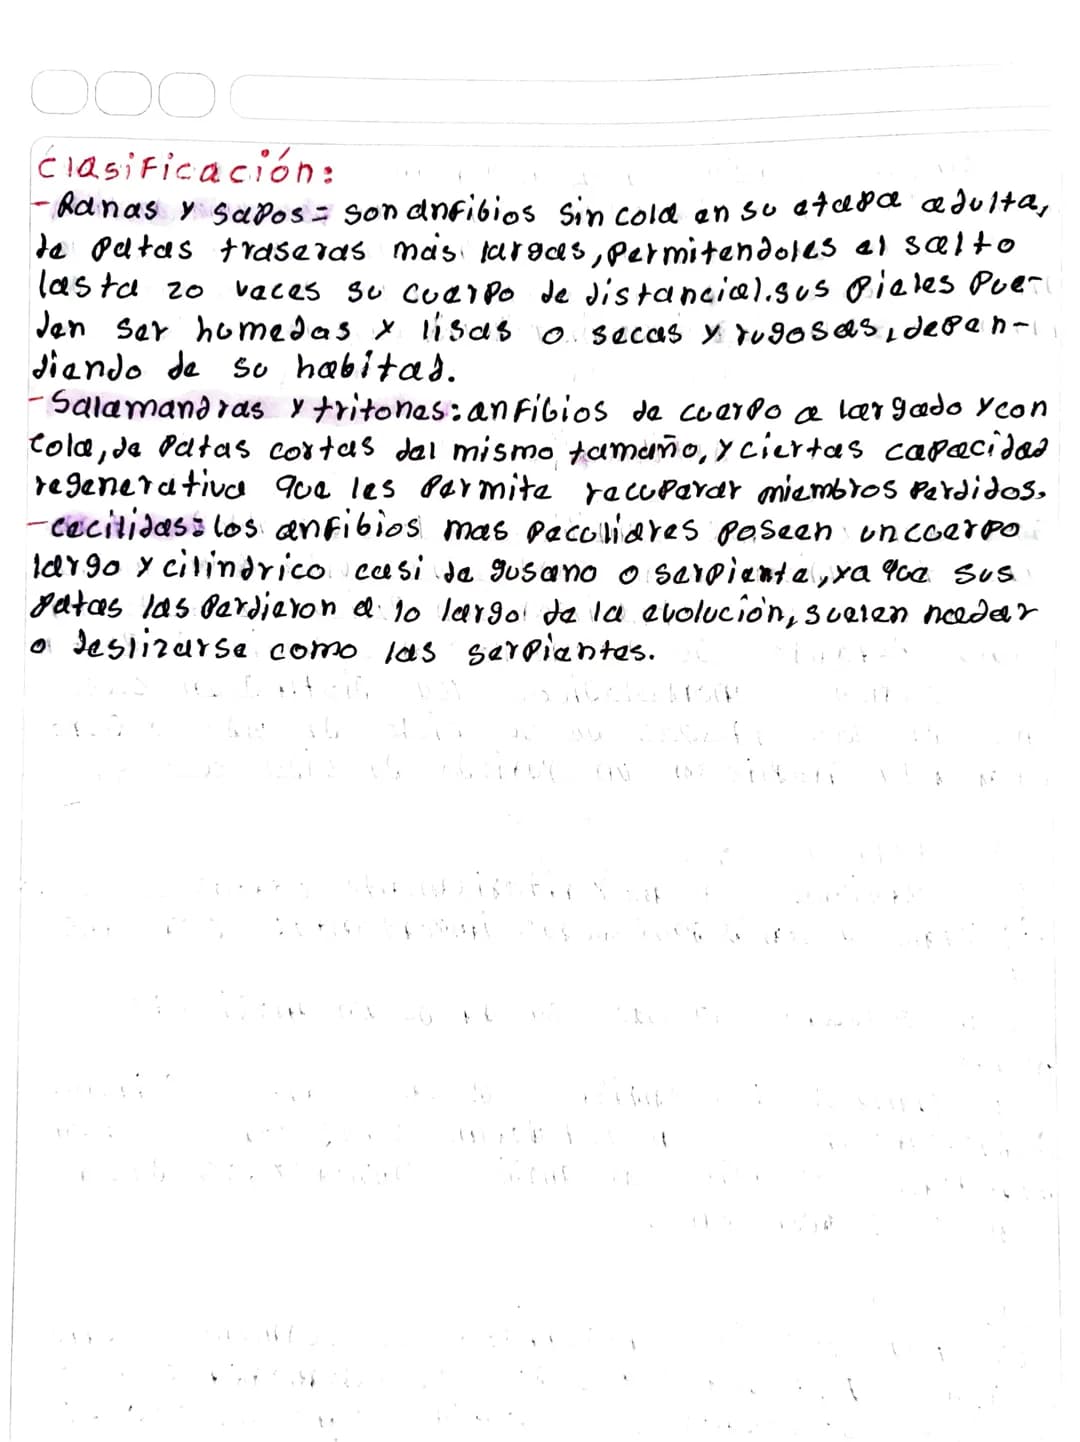 Clasificación:
- Ranas y sapos = son anfibios sin cola en su etapa adulta,
de patas traseras mas largas, permitendoles el salto
lasta 20 veces su cuerpo de distancia. sus pieles pue-
den ser humedas y lisas o secas y rugosas, depen-
diendo de su habitad.
- Salamandras y tritones: anfibios de cuerpo a largado y con
cola, de patas cortas del mismo tamaño, y ciertas capacidad
regenerativa que les permite recuperar miembros perdidos.
- cecilidas: los anfibios mas peculiares poseen un cuerpo
largo y cilindrico casi de gusano o serpiente, ya que sus
patas las perdieron a lo largo de la evolución, suelen nadar
o deslizarse como las serpientes.